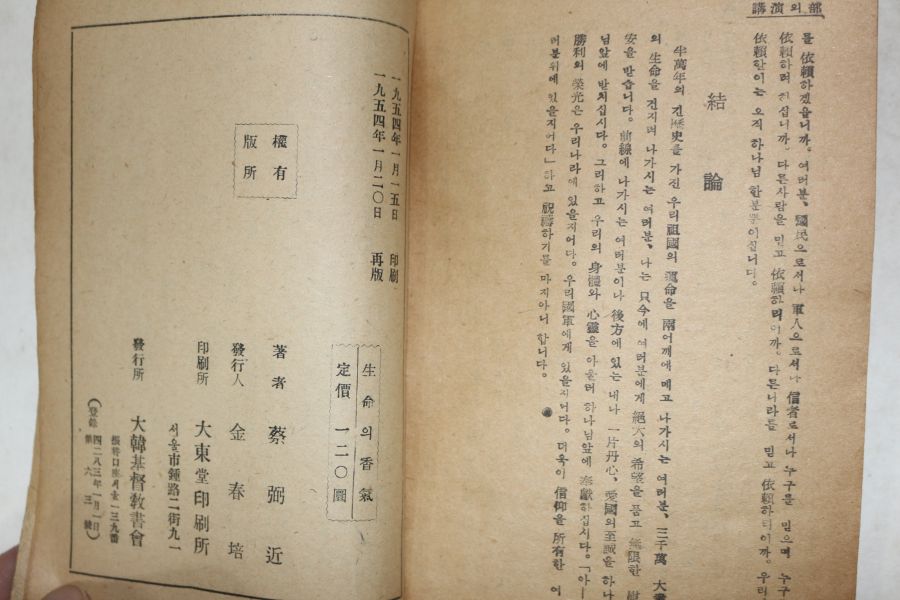 講演의部
를 依賴하겠읍니까. 여러분, 國民으로서나 軍人으로서나 信者로서나 누구를 믿으며 누구
依賴하려 하십니까. 다른사람을 믿고 依賴하리이까. 다른나라를 믿고 依賴하리이까. 우리
依賴할이는 오직 하나님 한분뿐이십니다.
結論
半萬年의 긴歷史를 가진 우리祖國의 運命을 兩어깨에 메고 나가시는 여러분, 三千萬 大衆
의 生命을 건지려 나가시는 여러분, 나는 只今에 여러분에게 絕大의 希望을 품고 無限한 慰
安을 받습니다. 前線에 나가시는 여러분이나 後方에 있는 내나 一片丹心, 愛國의至誠을 하나
님앞에 바치십시다. 그리하고 우리의 身體와 心靈을 아울러 하나님앞에 奉獻하십시다. 「아ー
勝利의 榮光은 우리나라에 있을지어다. 우리國軍에게 있을지어다. 더욱이 信仰을 所有한 여
러분위에 있을지어다」하고 祝禱하기를 마지아니 합니다.
一九五四年一月一五日 印刷
一九五四年一月二〇日 再版
權有
版所
生命의香氣
定價 一二〇圜
著者 蔡弼近
發行人 金春培
印刷所 大東堂印刷所
서울市鍾路二街九一
發行所 大韓基督敎書會
振替口座서울一三九番
(登錄 四二八三年一月一日
第六三號)